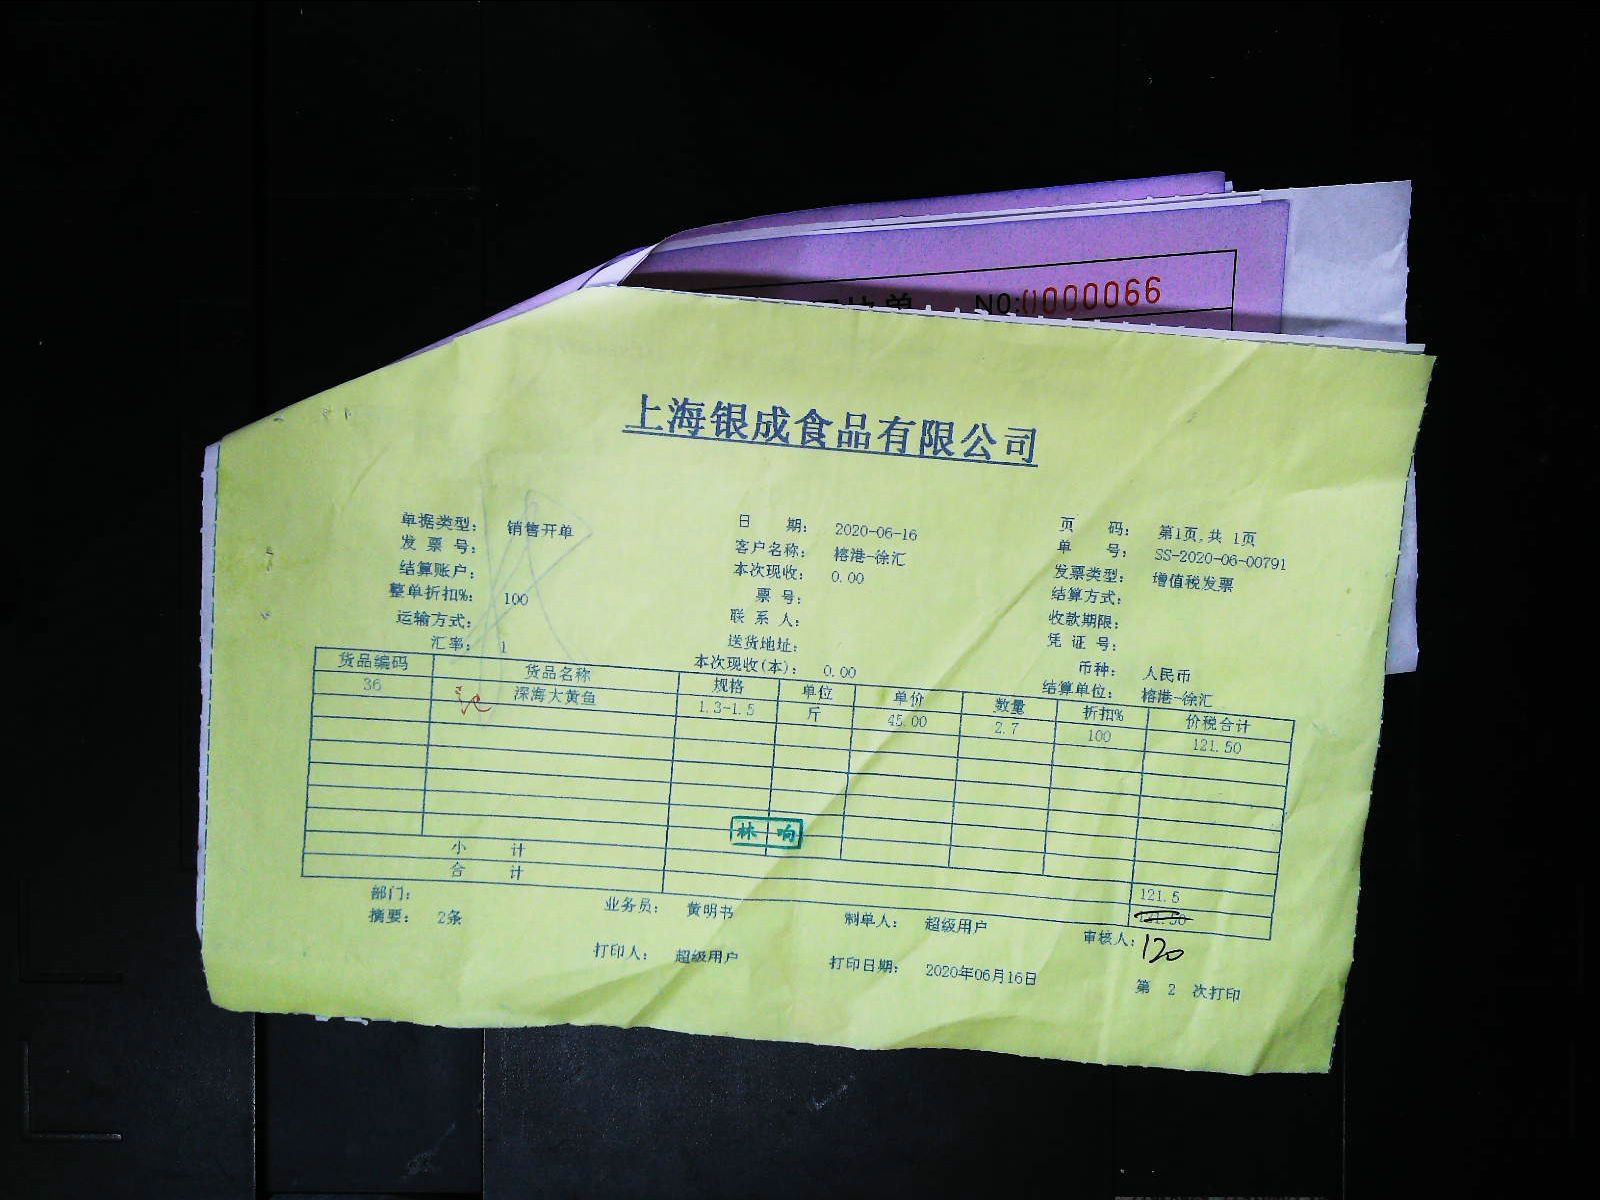 单 NO:0000066
上海银成食品有限公司
单据类型: 销售开单 日 期: 2020-06-16 页 码: 第1页,共 1页
发 票 号: 客户名称: 榕港-徐汇 单 号: SS-2020-06-00791
结算账户: 本次现收: 0.00 发票类型: 增值税发票
整单折扣%: 100 票 号: 结算方式:
运输方式: 联 系 人: 收款期限:
汇率: 1 送货地址: 凭 证 号:
本次现收(本): 0.00 币种: 人民币
结算单位: 榕港-徐汇
货品编码 货品名称 规格 单位 单价 数量 折扣% 价税合计
36 深海大黄鱼 1.3-1.5 斤 45.00 2.7 100 121.50
林 响
小 计 121.5
合 计 121.50
120
部门: 业务员: 黄明书 制单人: 超级用户 审核人:
摘要: 2条
打印人: 超级用户 打印日期: 2020年06月16日 第 2 次打印